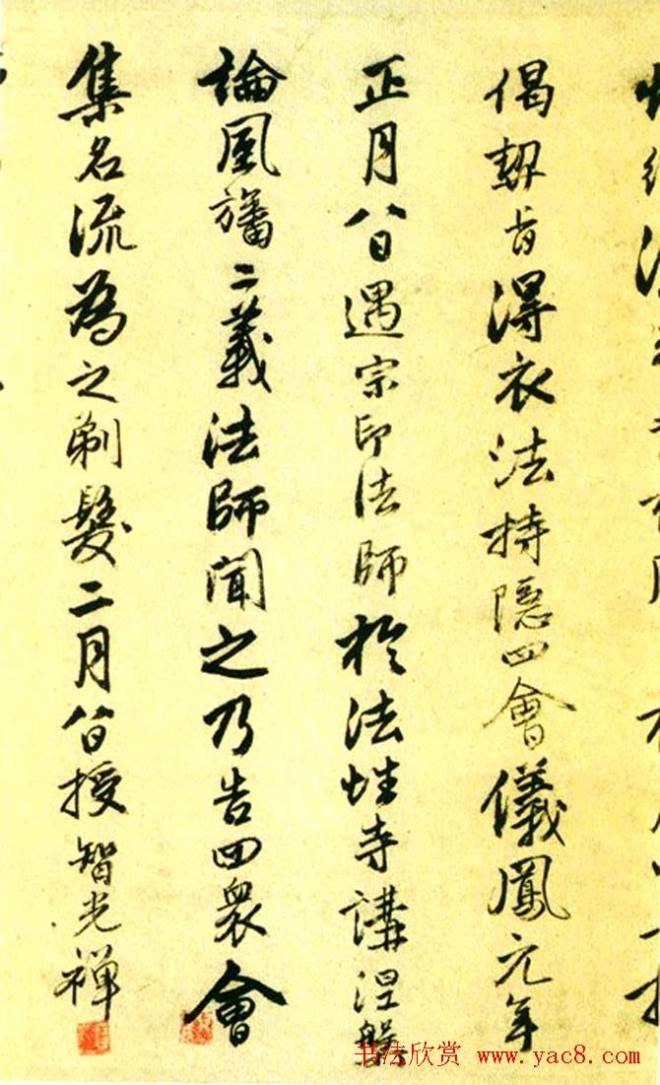 偈契旨得衣法持隱四會儀鳳元年
正月八日遇宗印法師於法性寺講涅槃
論風旛二義法師聞之乃告四衆會
集名流為之剃髮二月八日授智光禪
书法欣赏 www.yac8.com